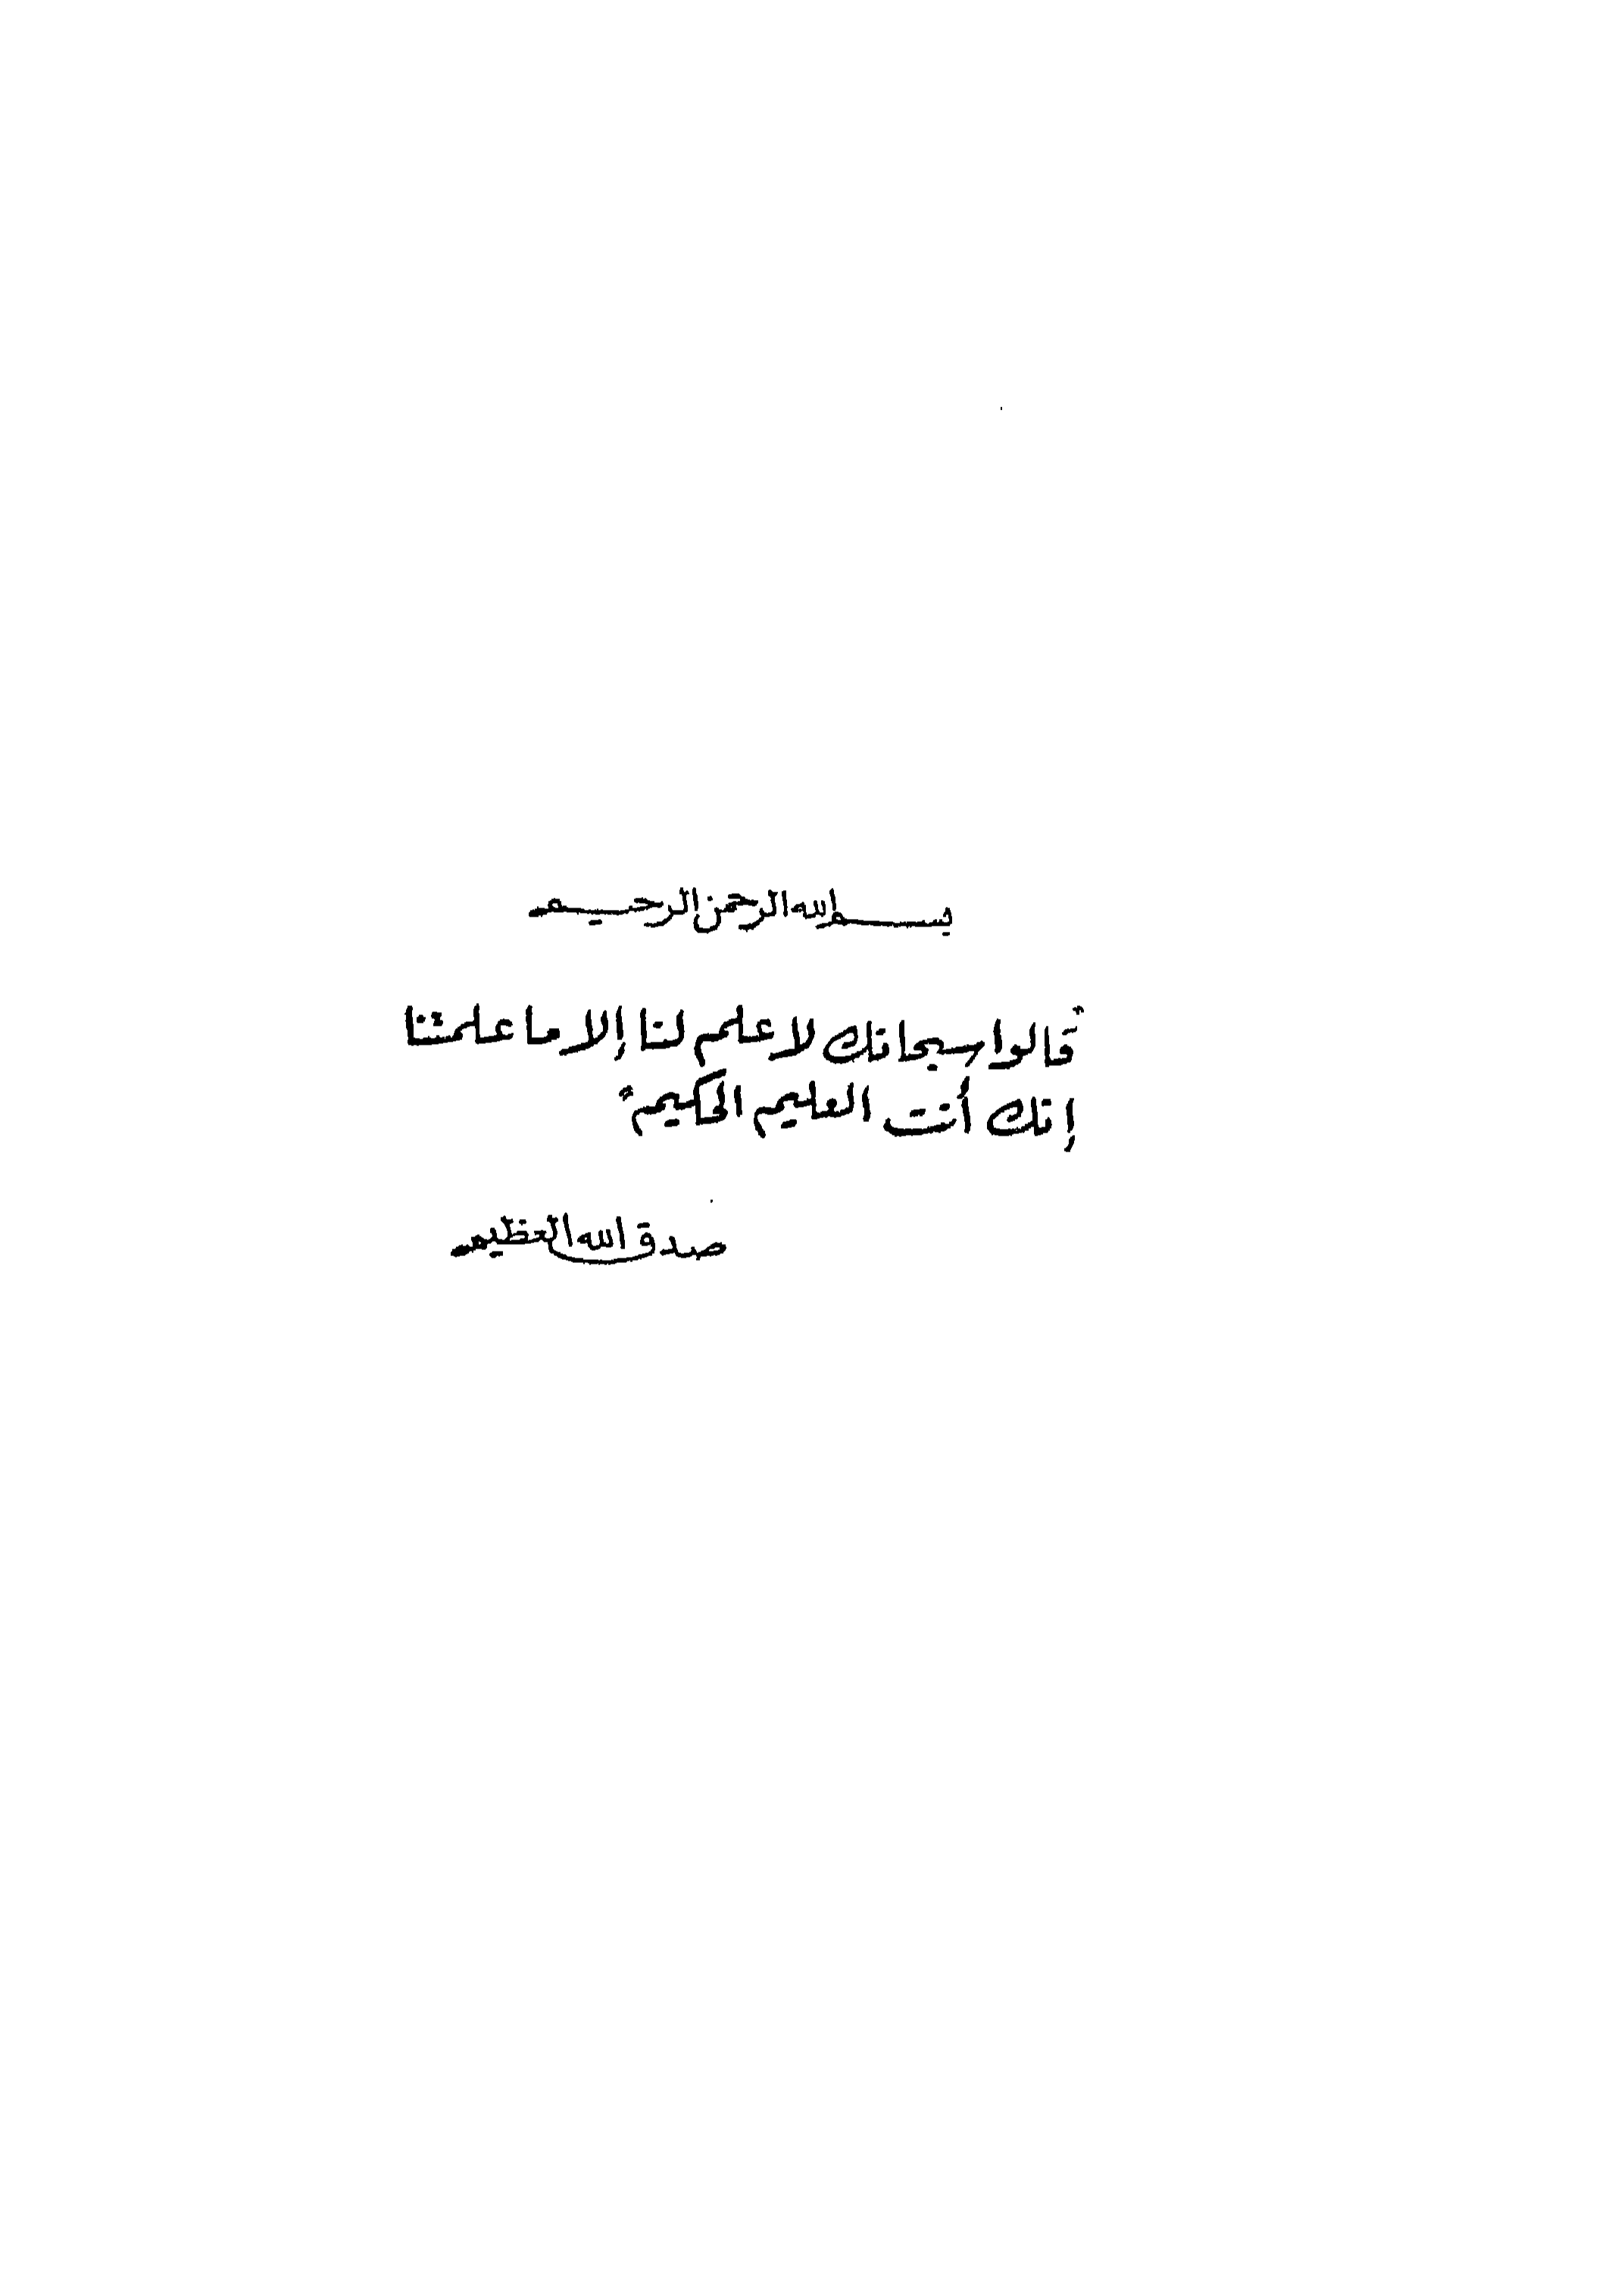 بسم الله الرحمن الرحيم
"قالوا سبحانك لا علم لنا إلا ما علمتنا
إنك أنت العليم الحكيم"
صدق الله العظيم